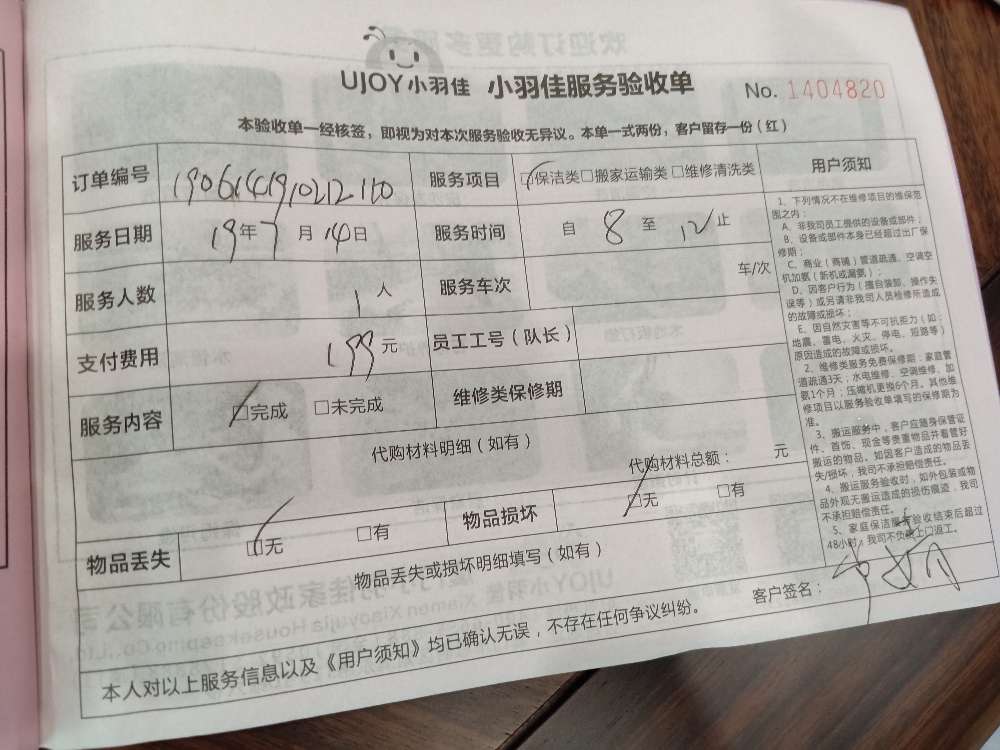 UJOY小羽佳 小羽佳服务验收单 No. 1404820
本验收单一经核签，即视为对本次服务验收无异议。本单一式两份，客户留存一份（红）
订单编号
服务项目 □保洁类□搬家运输类□维修清洗类
服务日期 19年7月14日 服务时间 自8至12止
服务人数 1人 服务车次 车/次
支付费用 199元 员工工号（队长）
服务内容 □完成 □未完成 维修类保修期
代购材料明细（如有）
代购材料总额： 元
物品丢失 □无 □有 物品损坏 □无 □有
物品丢失或损坏明细填写（如有）
客户签名：
本人对以上服务信息以及《用户须知》均已确认无误，不存在任何争议纠纷。
用户须知
1、下列情况不在维修项目的维保范
围之内：
A、非我司员工提供的设备或部件；
B、设备或部件本身已经超过出厂保
修期；
C、商业（商铺）管道疏通、空调空
机加氨（新机或漏氨）；
D、因客户行为（擅自装卸、操作失
误等）或另请非我司人员检修所造成
的故障或损坏；
E、因自然灾害等不可抗拒力（如：
地震、雷电、火灾、停电、短路等）
原因造成的故障或损坏。
2、维修类服务免费保修期：家庭管
道疏通3天；水电维修、空调维修、加
氨1个月；压缩机更换6个月。其他维
修项目以服务验收单填写的保修期为
准。
3、搬运服务中，客户应随身保管证
件、首饰、现金等贵重物品并看管好
搬运的物品。如因客户造成的物品丢
失/损坏，我司不承担赔偿责任。
4、搬运服务验收时，如外包装或物
品外观无搬运造成的损伤痕迹，我司
不承担赔偿责任。
5、家庭保洁服务验收结束后超过
48小时，我司不负责上门返工。